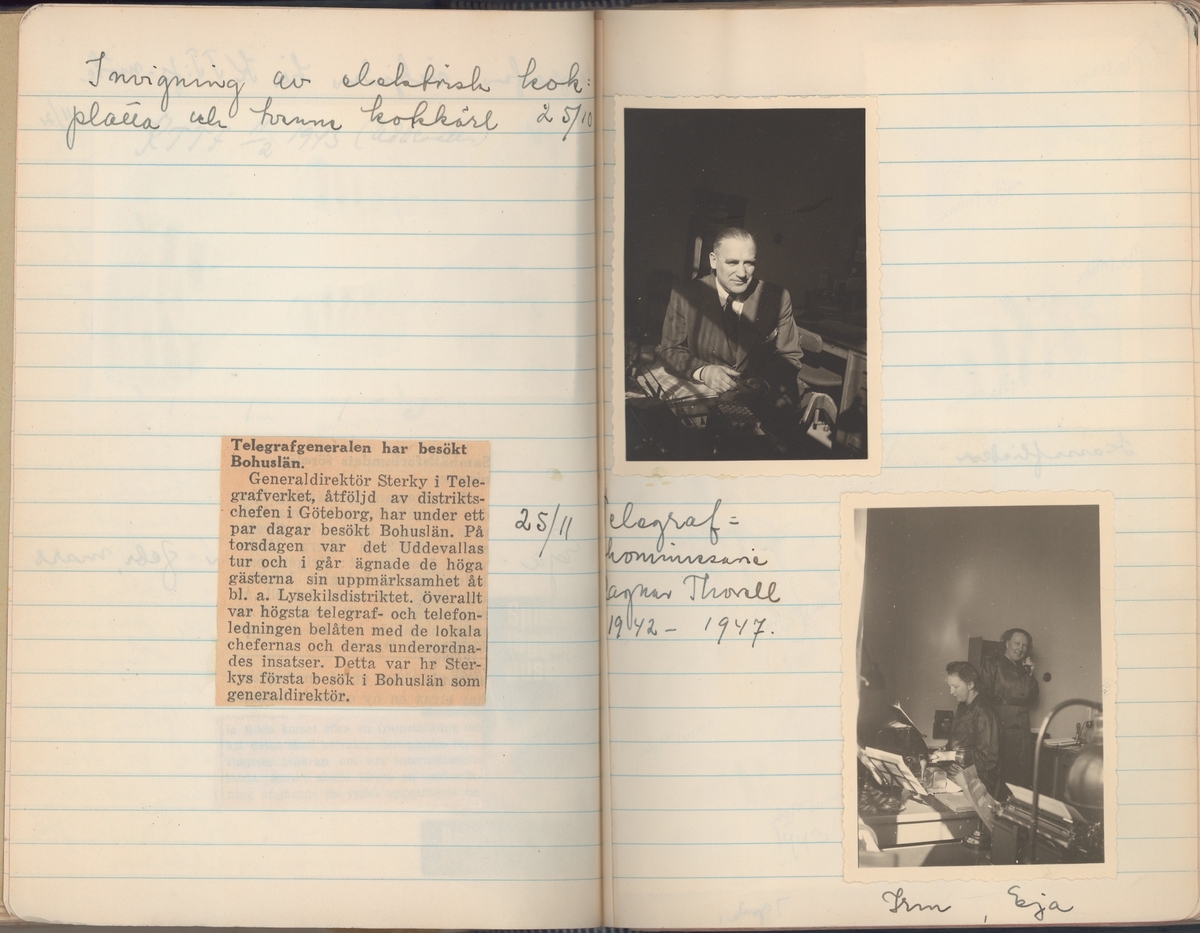 Invigning av elektrisk kok=
platta och kokkärl 25/10
Telegrafgeneralen har besökt
Bohuslän.
Generaldirektör Sterky i Tele-
grafverket, åtföljd av distrikts-
chefen i Göteborg, har under ett
par dagar besökt Bohuslän. På
torsdagen var det Uddevallas
tur och i går ägnade de höga
gästerna sin uppmärksamhet åt
bl. a. Lysekilsdistriktet. Överallt
var högsta telegraf- och telefon-
ledningen belåten med de lokala
chefernas och deras underordna-
des insatser. Detta var hr Ster-
kys första besök i Bohuslän som
generaldirektör.
25/11
Telegraf=
kommissarie
Ragnar Thorell
1942 - 1947.
Irm, Eja